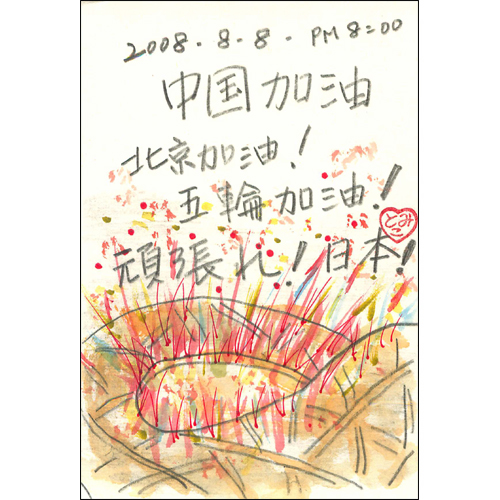 2008.8.8. PM 8:00
中国加油
北京加油!
五輪加油!
とみこ
頑張れ!日本!